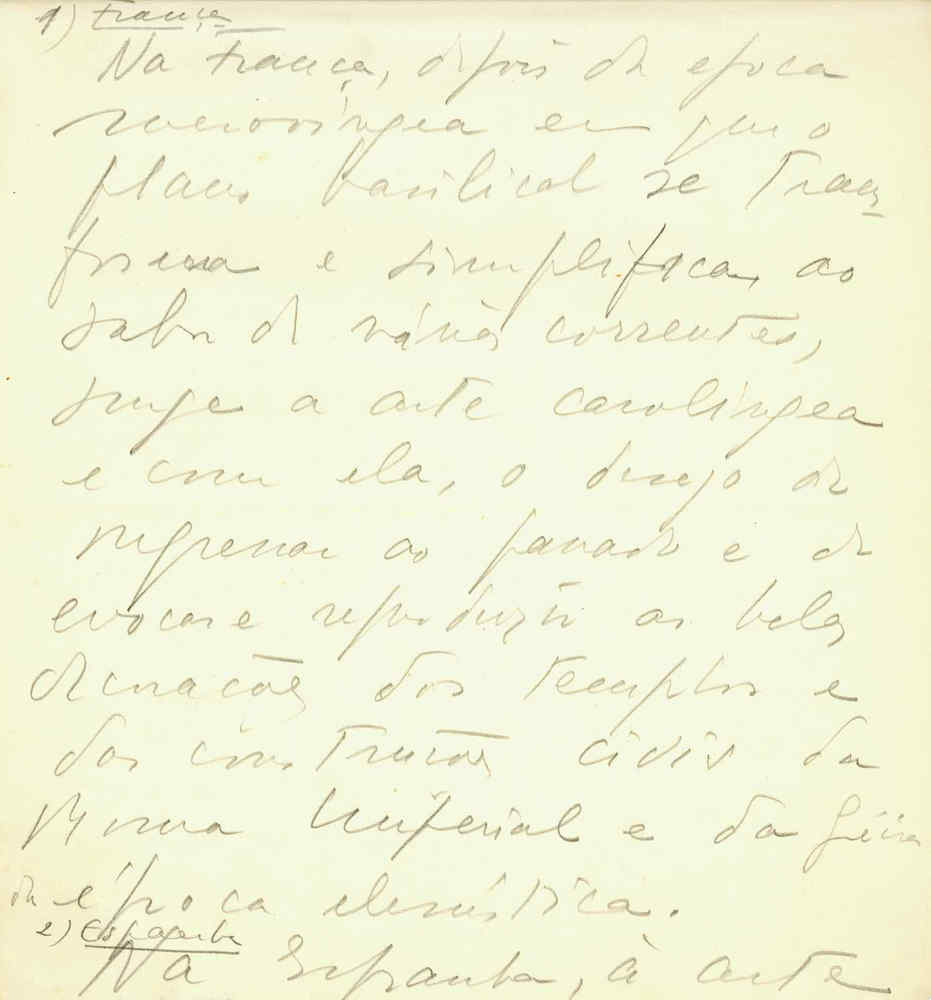 1) França
Na França, depois da epoca
merovíngea em que o
plano basilical se trans-
forma e simplifica, ao
sabor de várias correntes,
surge a arte carolíngea
e com ela, o desejo de
regressar ao passado e de
evocar e reproduzir as belas
decorações dos templos e
das construções civis da
Roma Imperial e da Grécia
da época elenística.
2) Espanha
Na Espanha, à arte